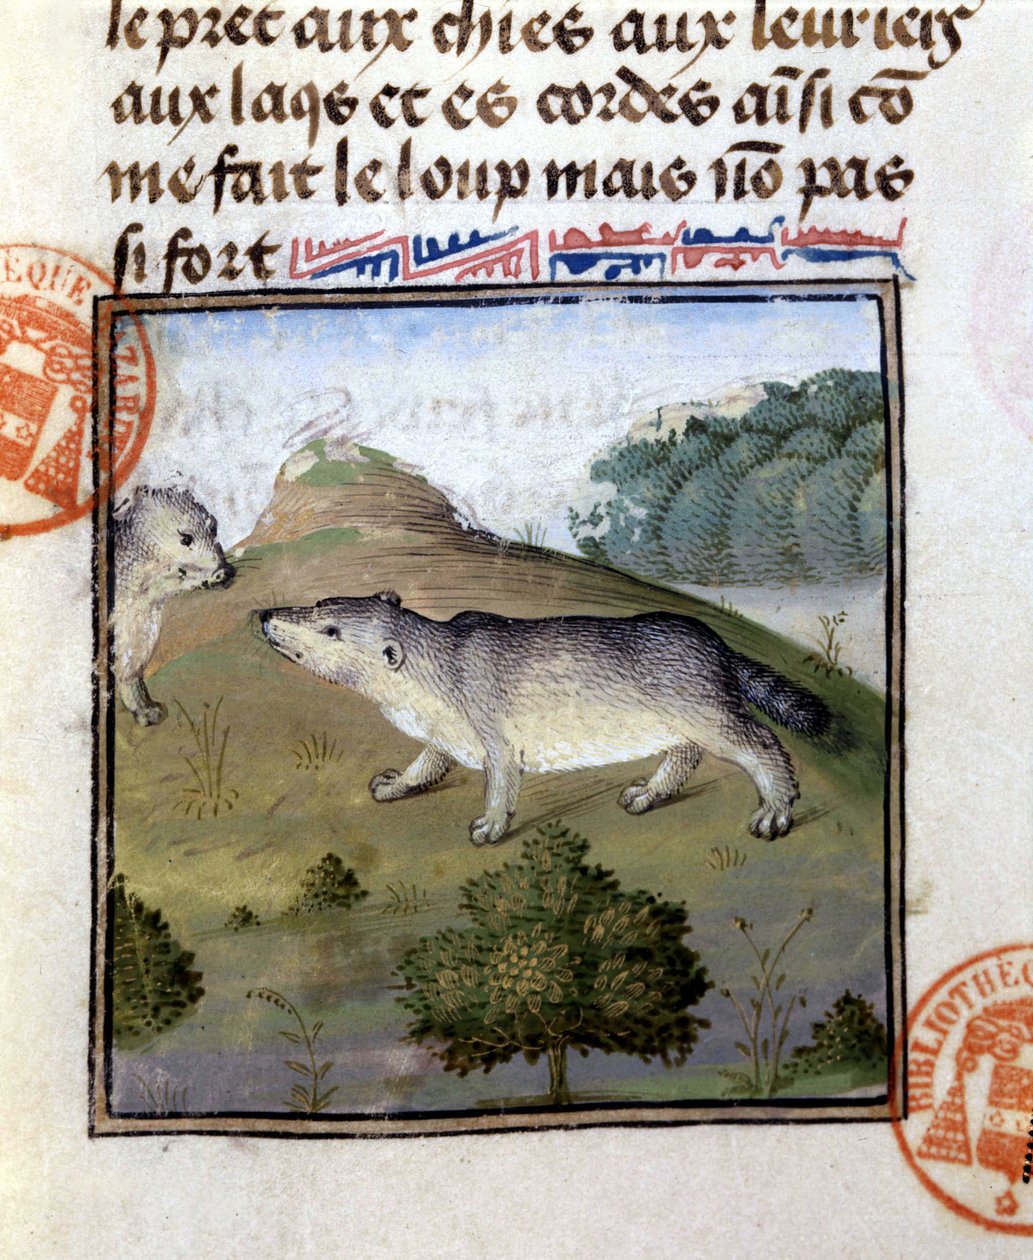 le pret aux chies aux leuriers
aux laqs et es cordes aīsi cō
me fait le loup mais nō pas
si fort
EQUE
ZARI
BIBLIOTHÈ